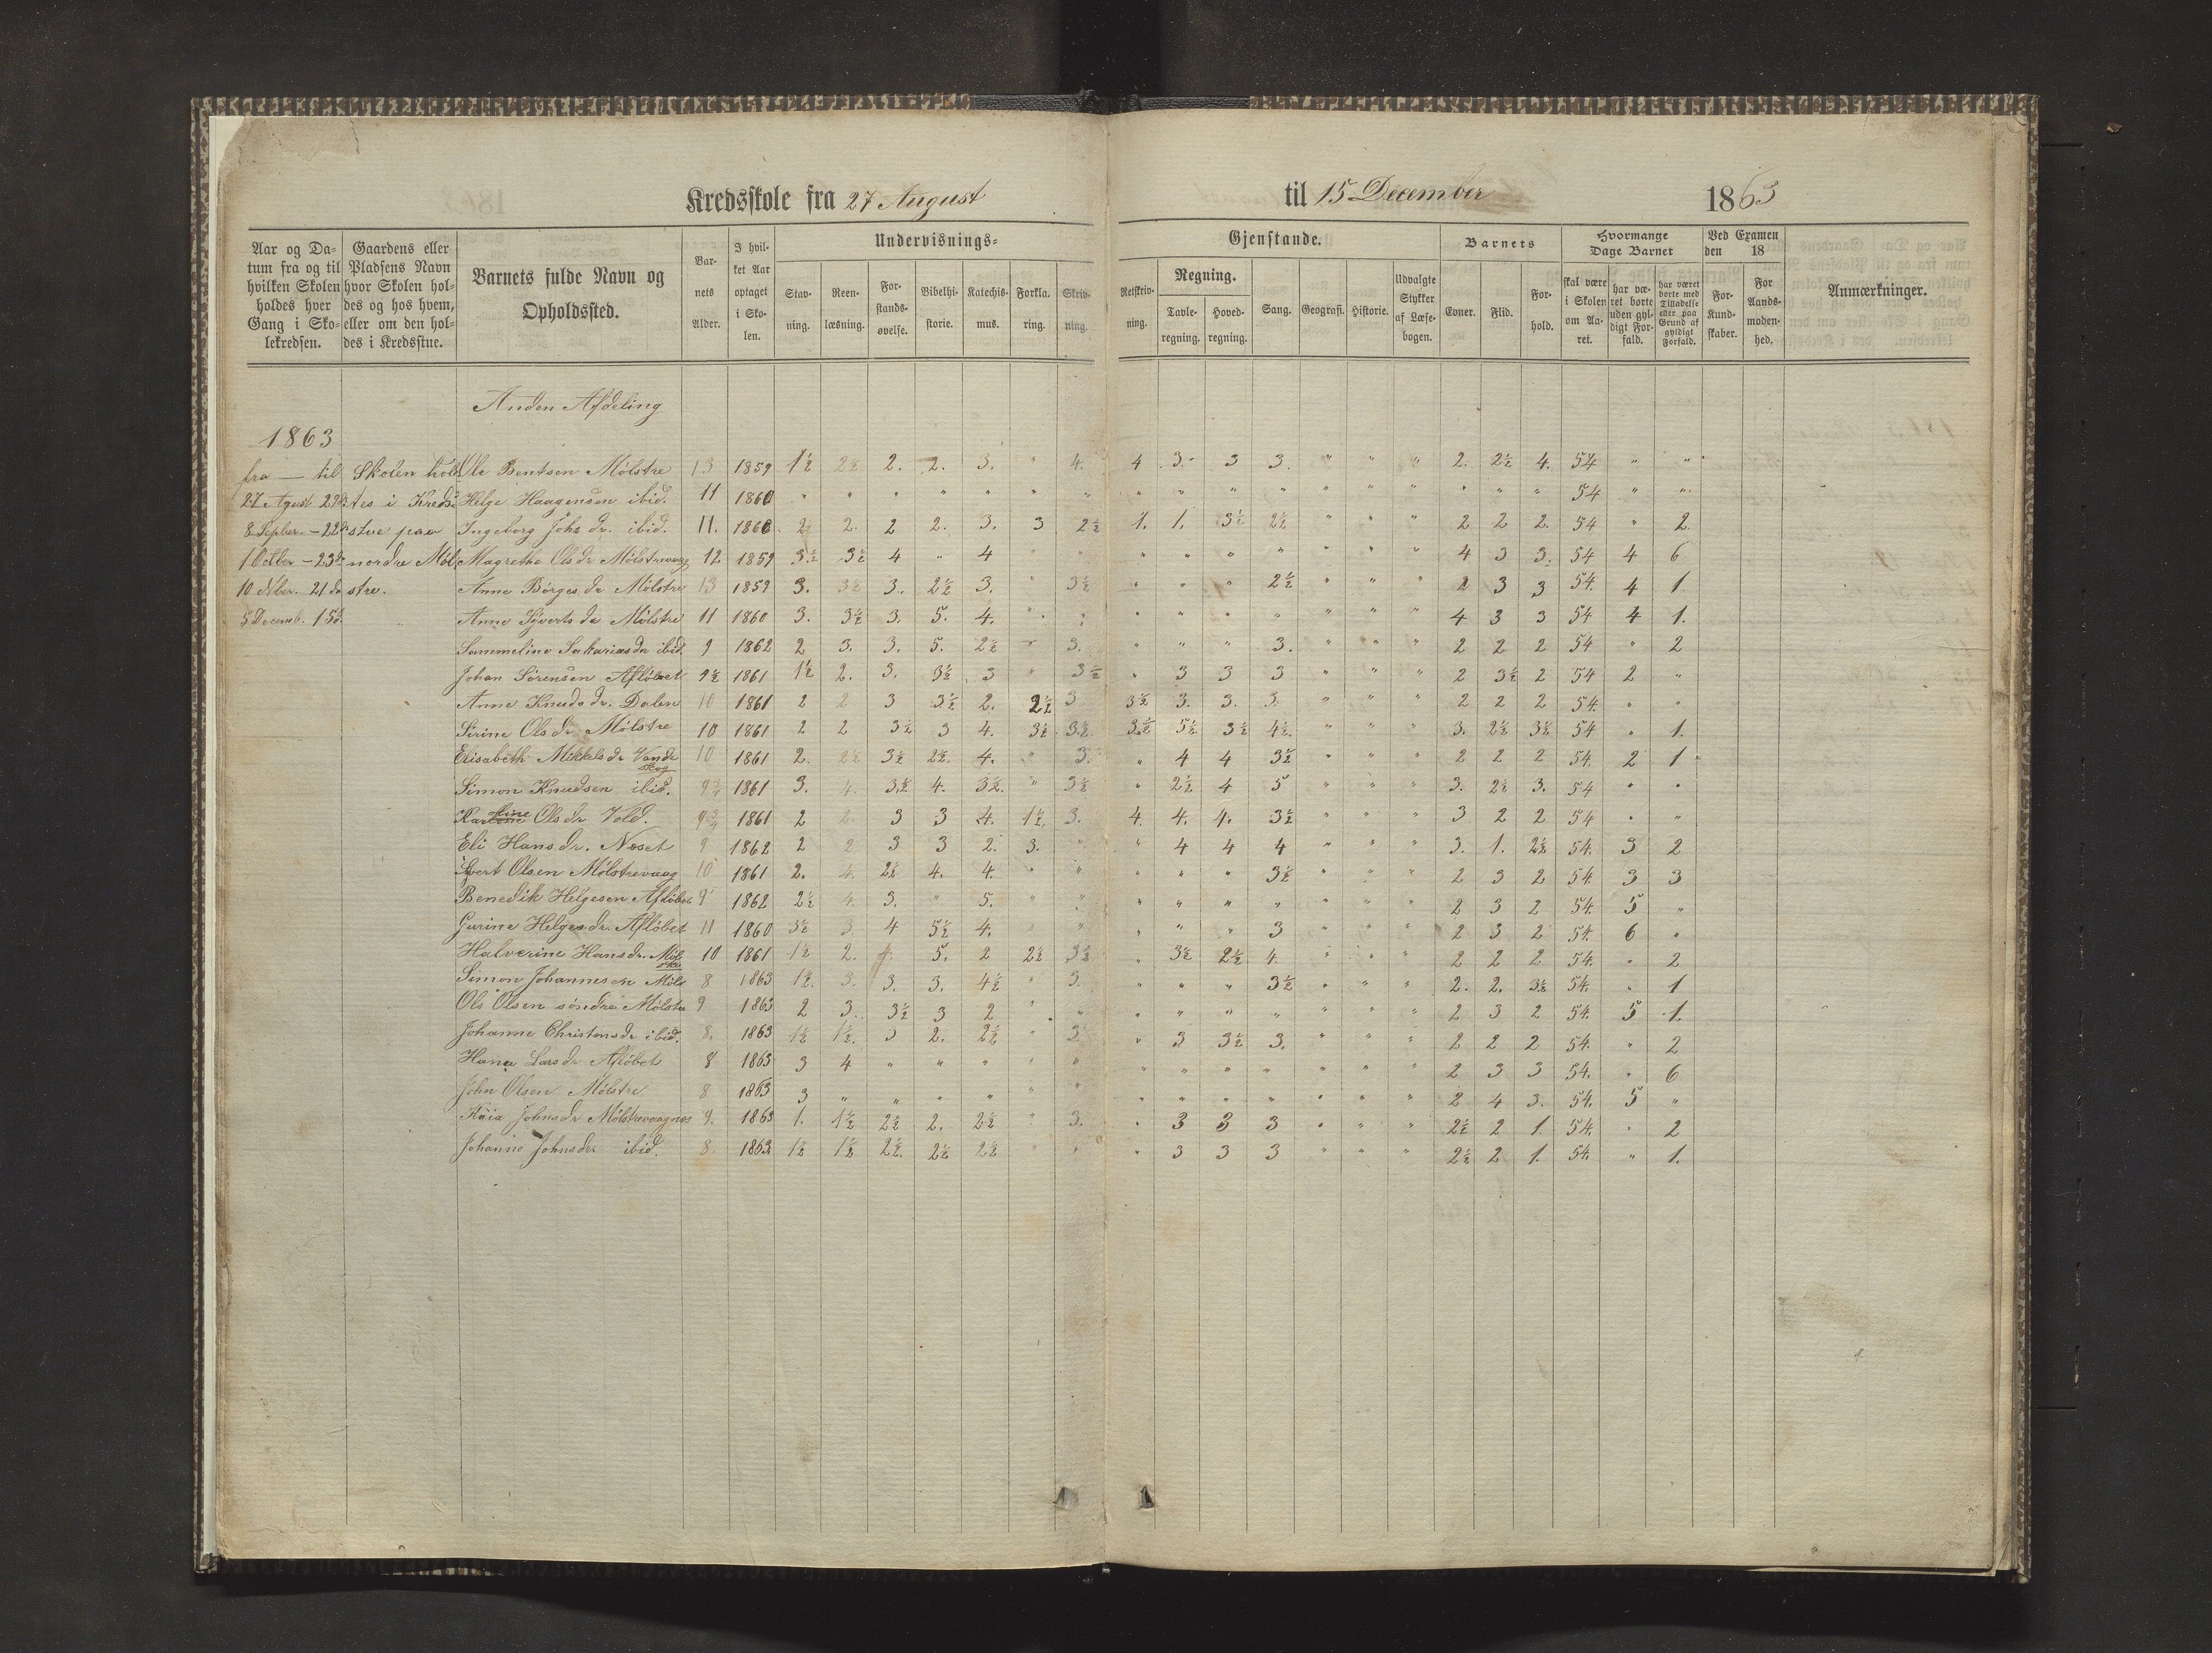 Kredsskole fra 27 August til 15 December 1863
Aar og Datum fra og til hvilken Skolen holdes hver Gang i Skolekredsen.
Gaardens eller Pladsens Navn hvor Skolen holdes og hos hvem, eller om den holdes i Kredsstue.
Barnets fulde Navn og Opholdssted.
Barnets Alder.
I hvilket Aar optaget i Skolen.
Undervisnings- Gjenstande.
Stavning. Reenlæsning. Forstandsøvelse. Bibelhistorie. Katechismus. Forklaring. Skrivning.
Retskrivning. Regning. Tavleregning. Hovedregning. Sang. Geografi. Historie. Udvalgte Stykker af Læsebogen.
Barnets Evner. Flid. Forhold.
Hvormange Dage Barnet skal være i Skolen om Aaret. har været borte uden gyldigt Forfald. har været borte med Tilladelse eller paa Grund af gyldigt Forfald.
Ved Examen den 18 For Kundskaber. For Aandsmodenhed.
Anmærkninger.
Anden Afdeling
1863
fra — til Skolen hol Ole Bentsen Mølstre 13 1859 1½ 2½ 2. 2. 3. " 4. 4 3. 3 3. " " " 2. 2½ 4. 54 " "
27 Agust 29 des i Kreds Helge Haagensen ibid. 11 1860 " " " " " " " " " " " " " " " " " 54 " "
8 Sepber. - 22 stue paa Ingeborg Johs dr. ibid. 11. 1860. 2½ 2. 2 2. 3. 3 2½ 1. 1. 3½ 2½ " " " 2 2 2. 54 " 2
1 Octber - 23 nordre Møl Magrethe Olsdr Mølstrevaag 12 1859 3½ 3½ 4 " 4 " " " " " " " " " 4 3 3. 54 4 6
10 Nber. 21 do stre. Anne Børges dr Mølstre 13 1859 3. 3½ 3. 2½ 3. " 3½ " " " 2½ " " " 2 3 3 54. 4 1.
5 Decemb. 15 d. Anne Syverts dr Mølstre 11 1860 3. 3½ 3. 5. 4. " " " " " " " " " 4 3 3 54 4 1.
Sammeline Sakariasdr ibid. 9 1862 2 3. 3. 5. 2½ " 3. " " " 3. " " " 2 2 2 54 " 2
Johan Sørensen Afløbet 9½ 1861 1½ 2. 3. 3½ 3 " 3½ " 3 3 3 " " " 2 3½ 2 54 2 "
Anne Knuds dr. Dalen 10 1861 2 2 3 3½ 2. 2½ 3 3½ 3. 3. 3. " " " 2 2 2 54. " "
Sirine Ols dr Mølstre 10 1861 2 2 3½ 3 4. 3½ 3½ 3½ 5½ 3½ 4½ " " " 3. 2½ 3½ 54 " 1.
Elisabeth Mikkels dr Vandskog 10 1861 2. 2½ 3½ 2½. 4. " 3. " 4 4 3½ " " " 2 2 2 54. 2 1
Simon Knudsen ibid. 9¾ 1861 3. 4. 3½ 4. 3½. " 3½ " 2½ 4 5 " " " 3. 2½ 3. 54 " "
Karoline Olsdr Vold. 9¾ 1861 2 2. 3 3 4. 1½. 3. 4. 4. 4. 3½ " " " 3 2 2 54 " "
Eli Hansdr. Neset 9 1862 2 2 3 3 2. 3. " " 4 4 4 " " " 3. 1. 2½ 54. 3 2
Syvert Olsen Mølstrevaag 10 1861 2. 4. 2½ 4. 4. " " " " " 3½ " " " 2 3 2 54. 3 3
Benedik Helgesen Afløbet 9 1862 2½ 4 3. " 5. " " " " " " " " " 2 3 2 54. 5 "
Gurine Helgesdr. Afløbet 11 1860 3½ 3. 4 5½ 4. " " " " " 3 " " " 2 3 2 54. 6 "
Halverine Hansdr. Mølstre 10 1861 1½ 2. 5. 2 2½ 3½ " 3½ 2½ 4. " " " 2 2 2 54. " 2
Simon Johannesen Møls 8 1863 1½. 3. 3. 3. 4½ " 3. " " " 3½ " " " 2. 2. 3½ 54. " 1
Ole Olsen søndre Mølstre 9 1863 2 3. 3½ 3 2 " " " " " " " " " 2 3 2 54. 5 1.
Johanne Christensdr ibid. 8. 1863 1½ 1½. 3 2. 2½ " 3. " 3 3½ 3. " " " 2 2 2 54. " 2
Hana Larsdr Afløbet 8 1863 3 4 " " " " " " " " " " " " 2 3 3 54. " 6
John Olsen Mølstre 8 1863 3 " " " " " " " " " " " " " 2 4 3. 54. 5 "
Kaia Johnsdr Mølstrevaagnes 9. 1863 1. 1½ 2½ 2. 2½ " 3. " 3 3 3 " " " 2½ 2 1 54. " 2
Johanne Johnsdr ibid. 8. 1863 1½ 1½ 2½. 2½ 2½ " " " 3 3 3 " " " 2½ 2 1. 54. " 1.